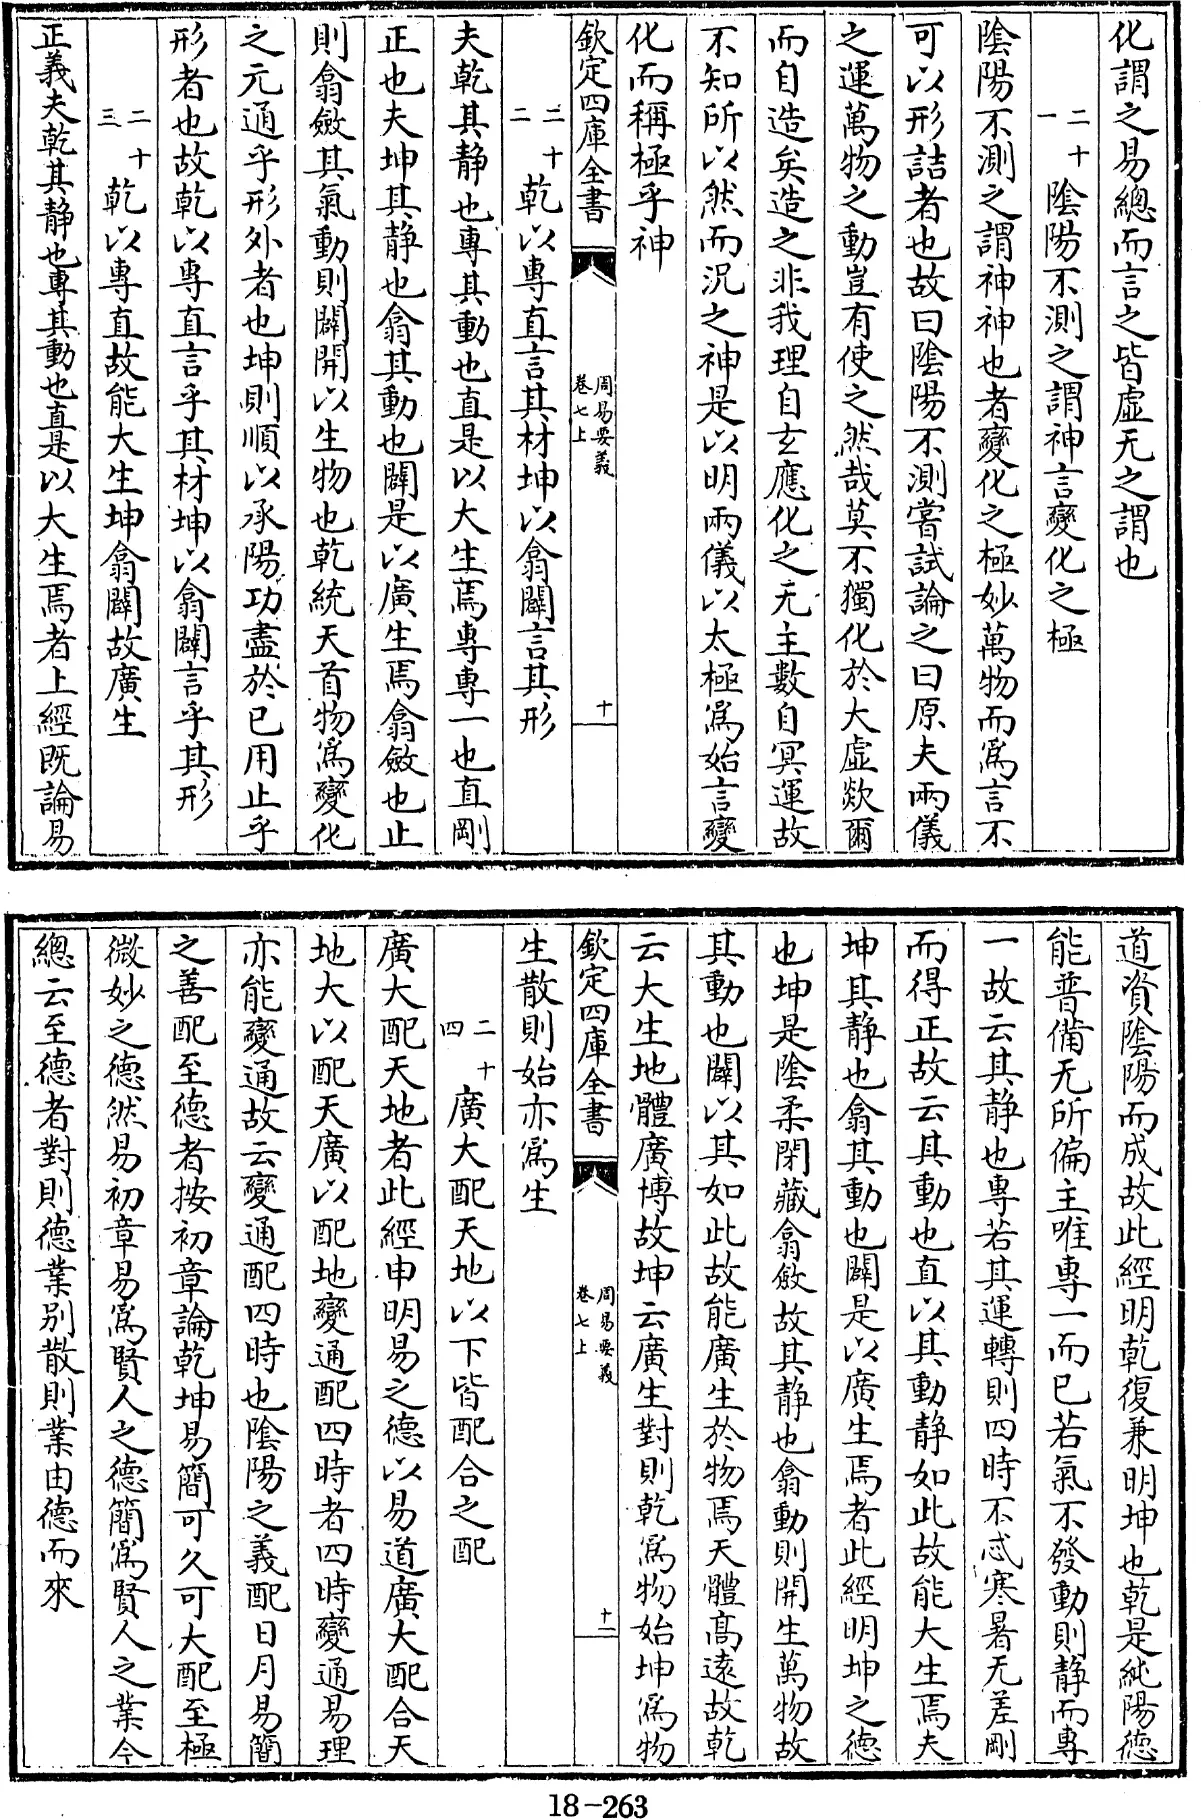 化謂之易總而言之皆虛无之謂也
二十一 陰陽不測之謂神言變化之極
陰陽不測之謂神神也者變化之極妙萬物而爲言不
可以形詰者也故曰陰陽不測嘗試論之曰原夫兩儀
之運萬物之動豈有使之然哉莫不獨化於大虛欻爾
而自造矣造之非我理自玄應化之无主數自冥運故
不知所以然而況之神是以明兩儀以太極爲始言變
化而稱極乎神
欽定四庫全書 周易要義 卷七上 十
二十二 乾以專直言其材坤以翕闢言其形
夫乾其静也專其動也直是以大生焉專專一也直剛
正也夫坤其静也翕其動也闢是以廣生焉翕斂也止
則翕斂其氣動則闢開以生物也乾統天首物爲變化
之元通乎形外者也坤則順以承陽功盡於已用止乎
形者也故乾以專直言乎其材坤以翕闢言乎其形
二十三 乾以專直故能大生坤翕闢故廣生
正義夫乾其静也專其動也直是以大生焉者上經既論易
道資陰陽而成故此經明乾復兼明坤也乾是純陽德
能普備无所偏主唯專一而已若氣不發動則静而專
一故云其静也專若其運轉則四時不忒寒暑无差剛
而得正故云其動也直以其動静如此故能大生焉夫
坤其静也翕其動也闢是以廣生焉者此經明坤之德
也坤是陰柔閉藏翕斂故其静也翕動則開生萬物故
其動也闢以其如此故能廣生於物焉天體髙遠故乾
云大生地體廣博故坤云廣生對則乾爲物始坤爲物
欽定四庫全書 周易要義 卷七上 十一
生散則始亦爲生
二十四 廣大配天地以下皆配合之配
廣大配天地者此經申明易之德以易道廣大配合天
地大以配天廣以配地變通配四時者四時變通易理
亦能變通故云變通配四時也陰陽之義配日月易簡
之善配至德者按初章論乾坤易簡可久可大配至極
微妙之德然易初章易爲賢人之德簡爲賢人之業今
總云至德者對則德業别散則業由德而來
18-263